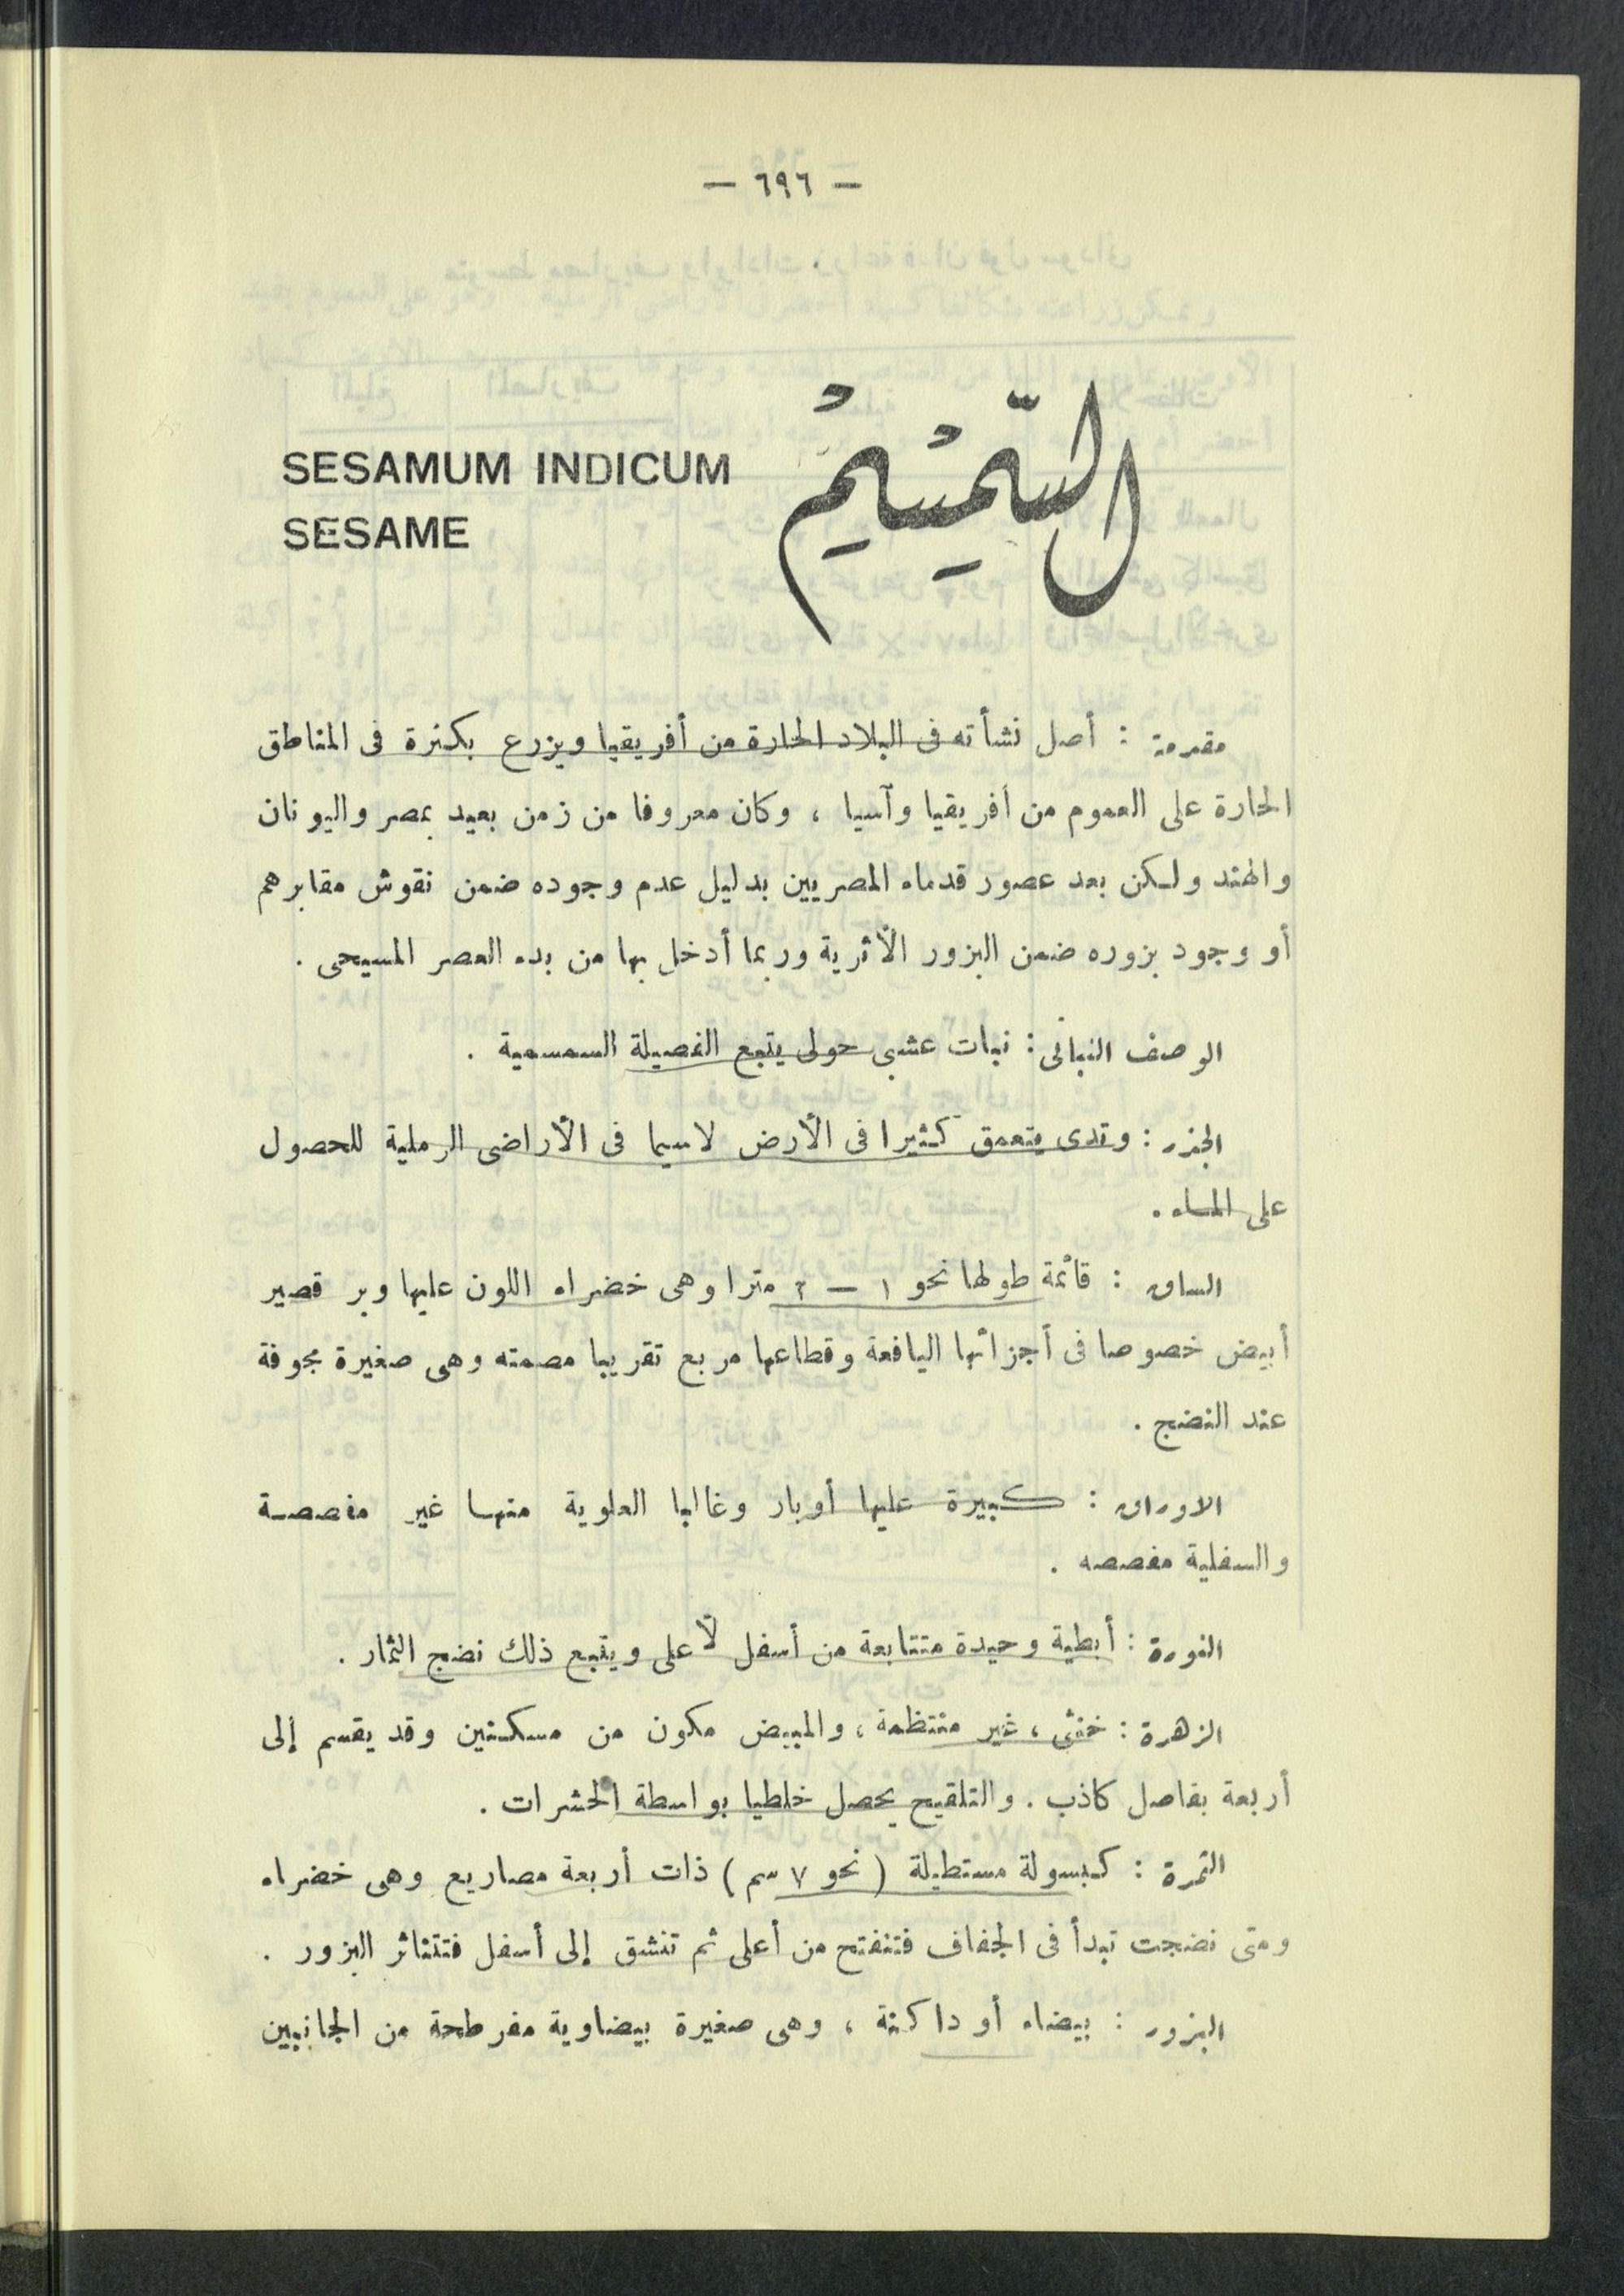 — ٦٩٦ —
السِّمْسِمْ
SESAMUM INDICUM
SESAME
مقدمة : أصل نشأته فى البلاد الحارة من أفريقيا ويزرع بكثرة فى المناطق
الحارة على العموم من أفريقيا وآسيا ، وكان معروفا من زمن بعيد بمصر واليونان
والهند ولكن بعد عصور قدماء المصريين بدليل عدم وجوده ضمن نقوش مقابرهم
أو وجود بزوره ضمن البزور الأثرية وربما أدخل بها من بدء العصر المسيحى .
الوصف النباتى : نبات عشبى حولى يتبع الفصيلة السمسمية .
الجذر : وتدى يتعمق كثيرا فى الأرض لاسيما فى الأراضى الرملية للحصول
على الماء .
الساق : قائمة طولها نحو ١ — ٢ مترا وهى خضراء اللون عليها وبر قصير
أبيض خصوصا فى أجزائها اليافعة وقطاعها مربع تقريبا مصمته وهى صغيرة مجوفة
عند النضج .
الاوراق : كبيرة عليها أوبار وغالبا العلوية منها غير مفصصة
والسفلية مفصصه .
النورة : أبطية وحيدة متتابعة من أسفل لأعلى ويتبع ذلك نضج الثمار .
الزهرة : خنثى ، غير منتظمة ، والمبيض مكون من مسكنين وقد يقسم إلى
أربعة بفاصل كاذب . والتلقيح يحصل خلطيا بواسطة الحشرات .
الثمرة : كبسولة مستطيلة ( نحو ٧ سم ) ذات أربعة مصاريع وهى خضراء
ومتى نضجت تبدأ فى الجفاف فتنفتح من أعلى ثم تنشق إلى أسفل فتتناثر البزور .
البزور : بيضاء أو داكنة ، وهى صغيرة بيضاوية مفرطحة من الجانبين